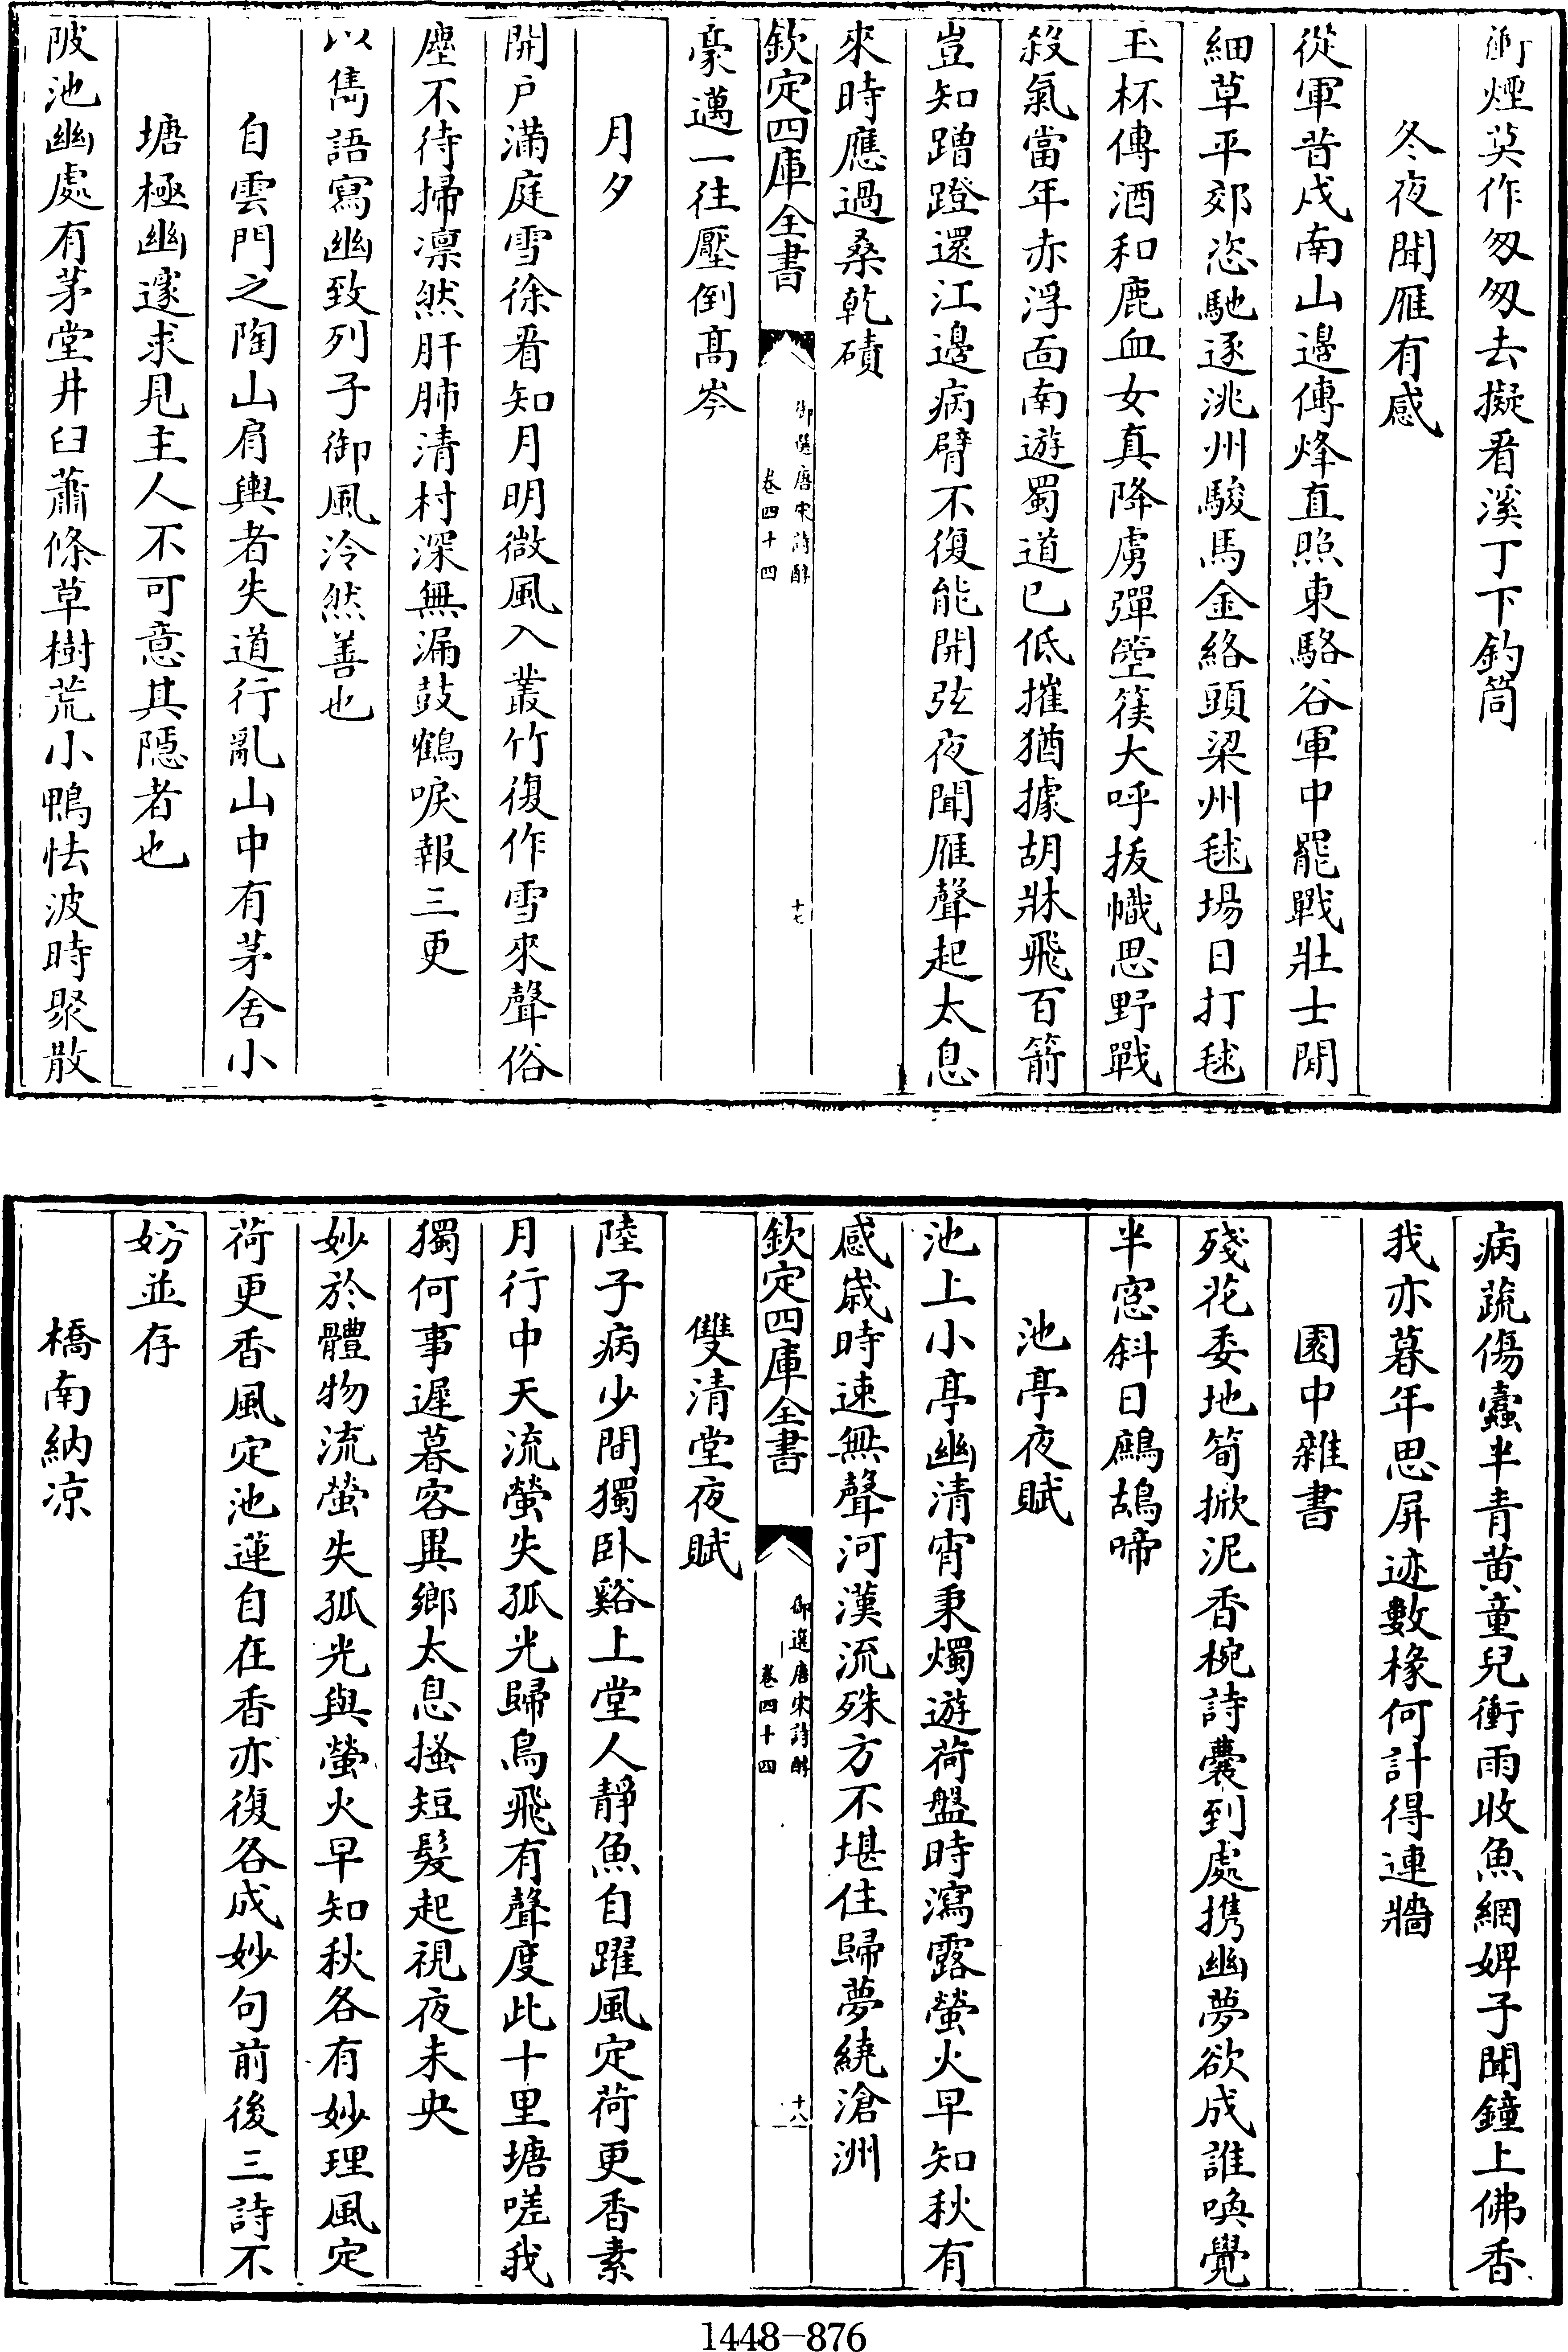 衝煙莫作匆匆去擬看溪丁下釣筒
冬夜聞雁有感
從軍昔戍南山邊傳烽直照東駱谷軍中罷戰壯士閒
細草平郊恣馳逐洮州駿馬金絡頭梁州毬場日打毬
玉杯傳酒和鹿血女真降虜彈箜篌大呼拔幟思野戰
殺氣當年赤浮面南遊蜀道已低摧猶據胡牀飛百箭
豈知蹭蹬還江邊病臂不復能開弦夜聞雁聲起太息
來時應過桑乾磧
欽定四庫全書
御選唐宋詩醇
卷四十四
十七
豪邁一往壓倒高岑
月夕
開戶滿庭雪徐看知月明微風入叢竹復作雪來聲俗
塵不待掃凛然肝肺清村深無漏鼓鶴唳報三更
以雋語寫幽致列子御風泠然善也
自雲門之陶山肩輿者失道行亂山中有茅舍小
塘極幽邃求見主人不可意其隱者也
陂池幽處有茅堂井臼蕭條草樹荒小鴨怯波時聚散
病蔬傷蠹半青黃童兒衝雨收魚網婢子聞鐘上佛香
我亦暮年思屏迹數椽何計得連牆
園中雜書
殘花委地筍掀泥香椀詩囊到處携幽夢欲成誰喚覺
半窓斜日鷓鴣啼
池亭夜賦
池上小亭幽清宵秉燭遊荷盤時瀉露螢火早知秋有
感歲時速無聲河漢流殊方不堪住歸夢繞滄洲
欽定四庫全書
御選唐宋詩醇
卷四十四
十八
雙清堂夜賦
陸子病少間獨卧谿上堂人靜魚自躍風定荷更香素
月行中天流螢失孤光歸鳥飛有聲度此十里塘嗟我
獨何事遲暮客異鄉太息搔短髮起視夜未央
妙於體物流螢失孤光與螢火早知秋各有妙理風定
荷更香風定池蓮自在香亦復各成妙句前後三詩不
妨並存
橋南納凉
1448-876